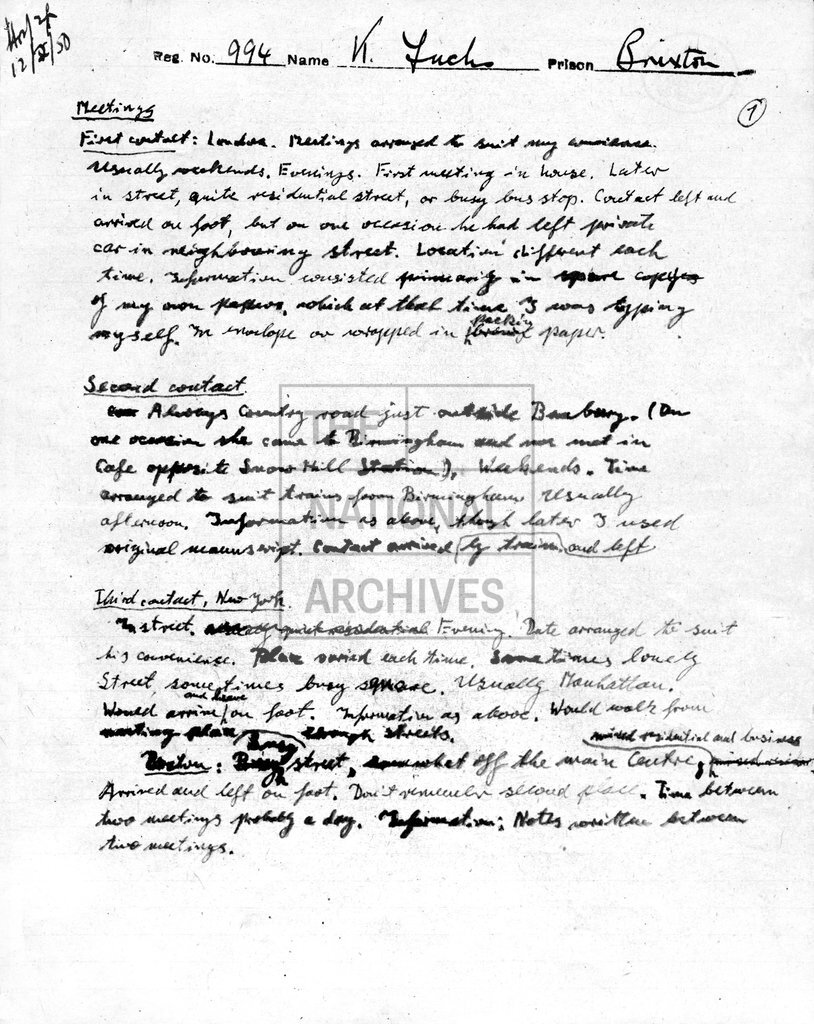 12/XI/50
Reg. No. 994 Name K. Fuchs Prison Brixton
1
Meetings
First contact: London. Meetings arranged to suit my convenience.
Usually weekends. Evenings. First meeting in house. Later
in street, quite residential street, or busy bus stop. Contact left and
arrived on foot, but on one occasion he had left private
car in neighbouring street. Location different each
time. Information consisted primarily in spare copies
of my own papers, which at that time I was typing
myself. In envelope or wrapped in packing paper.
Second contact
Always Country road just outside Banbury. (On
one occasion she came to Birmingham and we met in
Cafe opposite Snow Hill Station). Weekends. Time
arranged to suit trains from Birmingham Usually
afternoon. Information as above, though later I used
original manuscript. Contact arrived by train and left
Third contact, New York.
In street. quiet residential Evening. Date arranged to suit
his convenience. Place varied each time. Sometimes lonely
Street, sometimes busy square. Usually Manhattan.
Would arrive and leave on foot. Information as above. Would walk from
meeting place through streets.
Boston: Busy street, somewhat off the main Centre, mixed residential and business
Arrived and left on foot. Don't remember second place. Time between
two meetings probably a day. Information: Notes written between
two meetings.
THE
NATIONAL
ARCHIVES